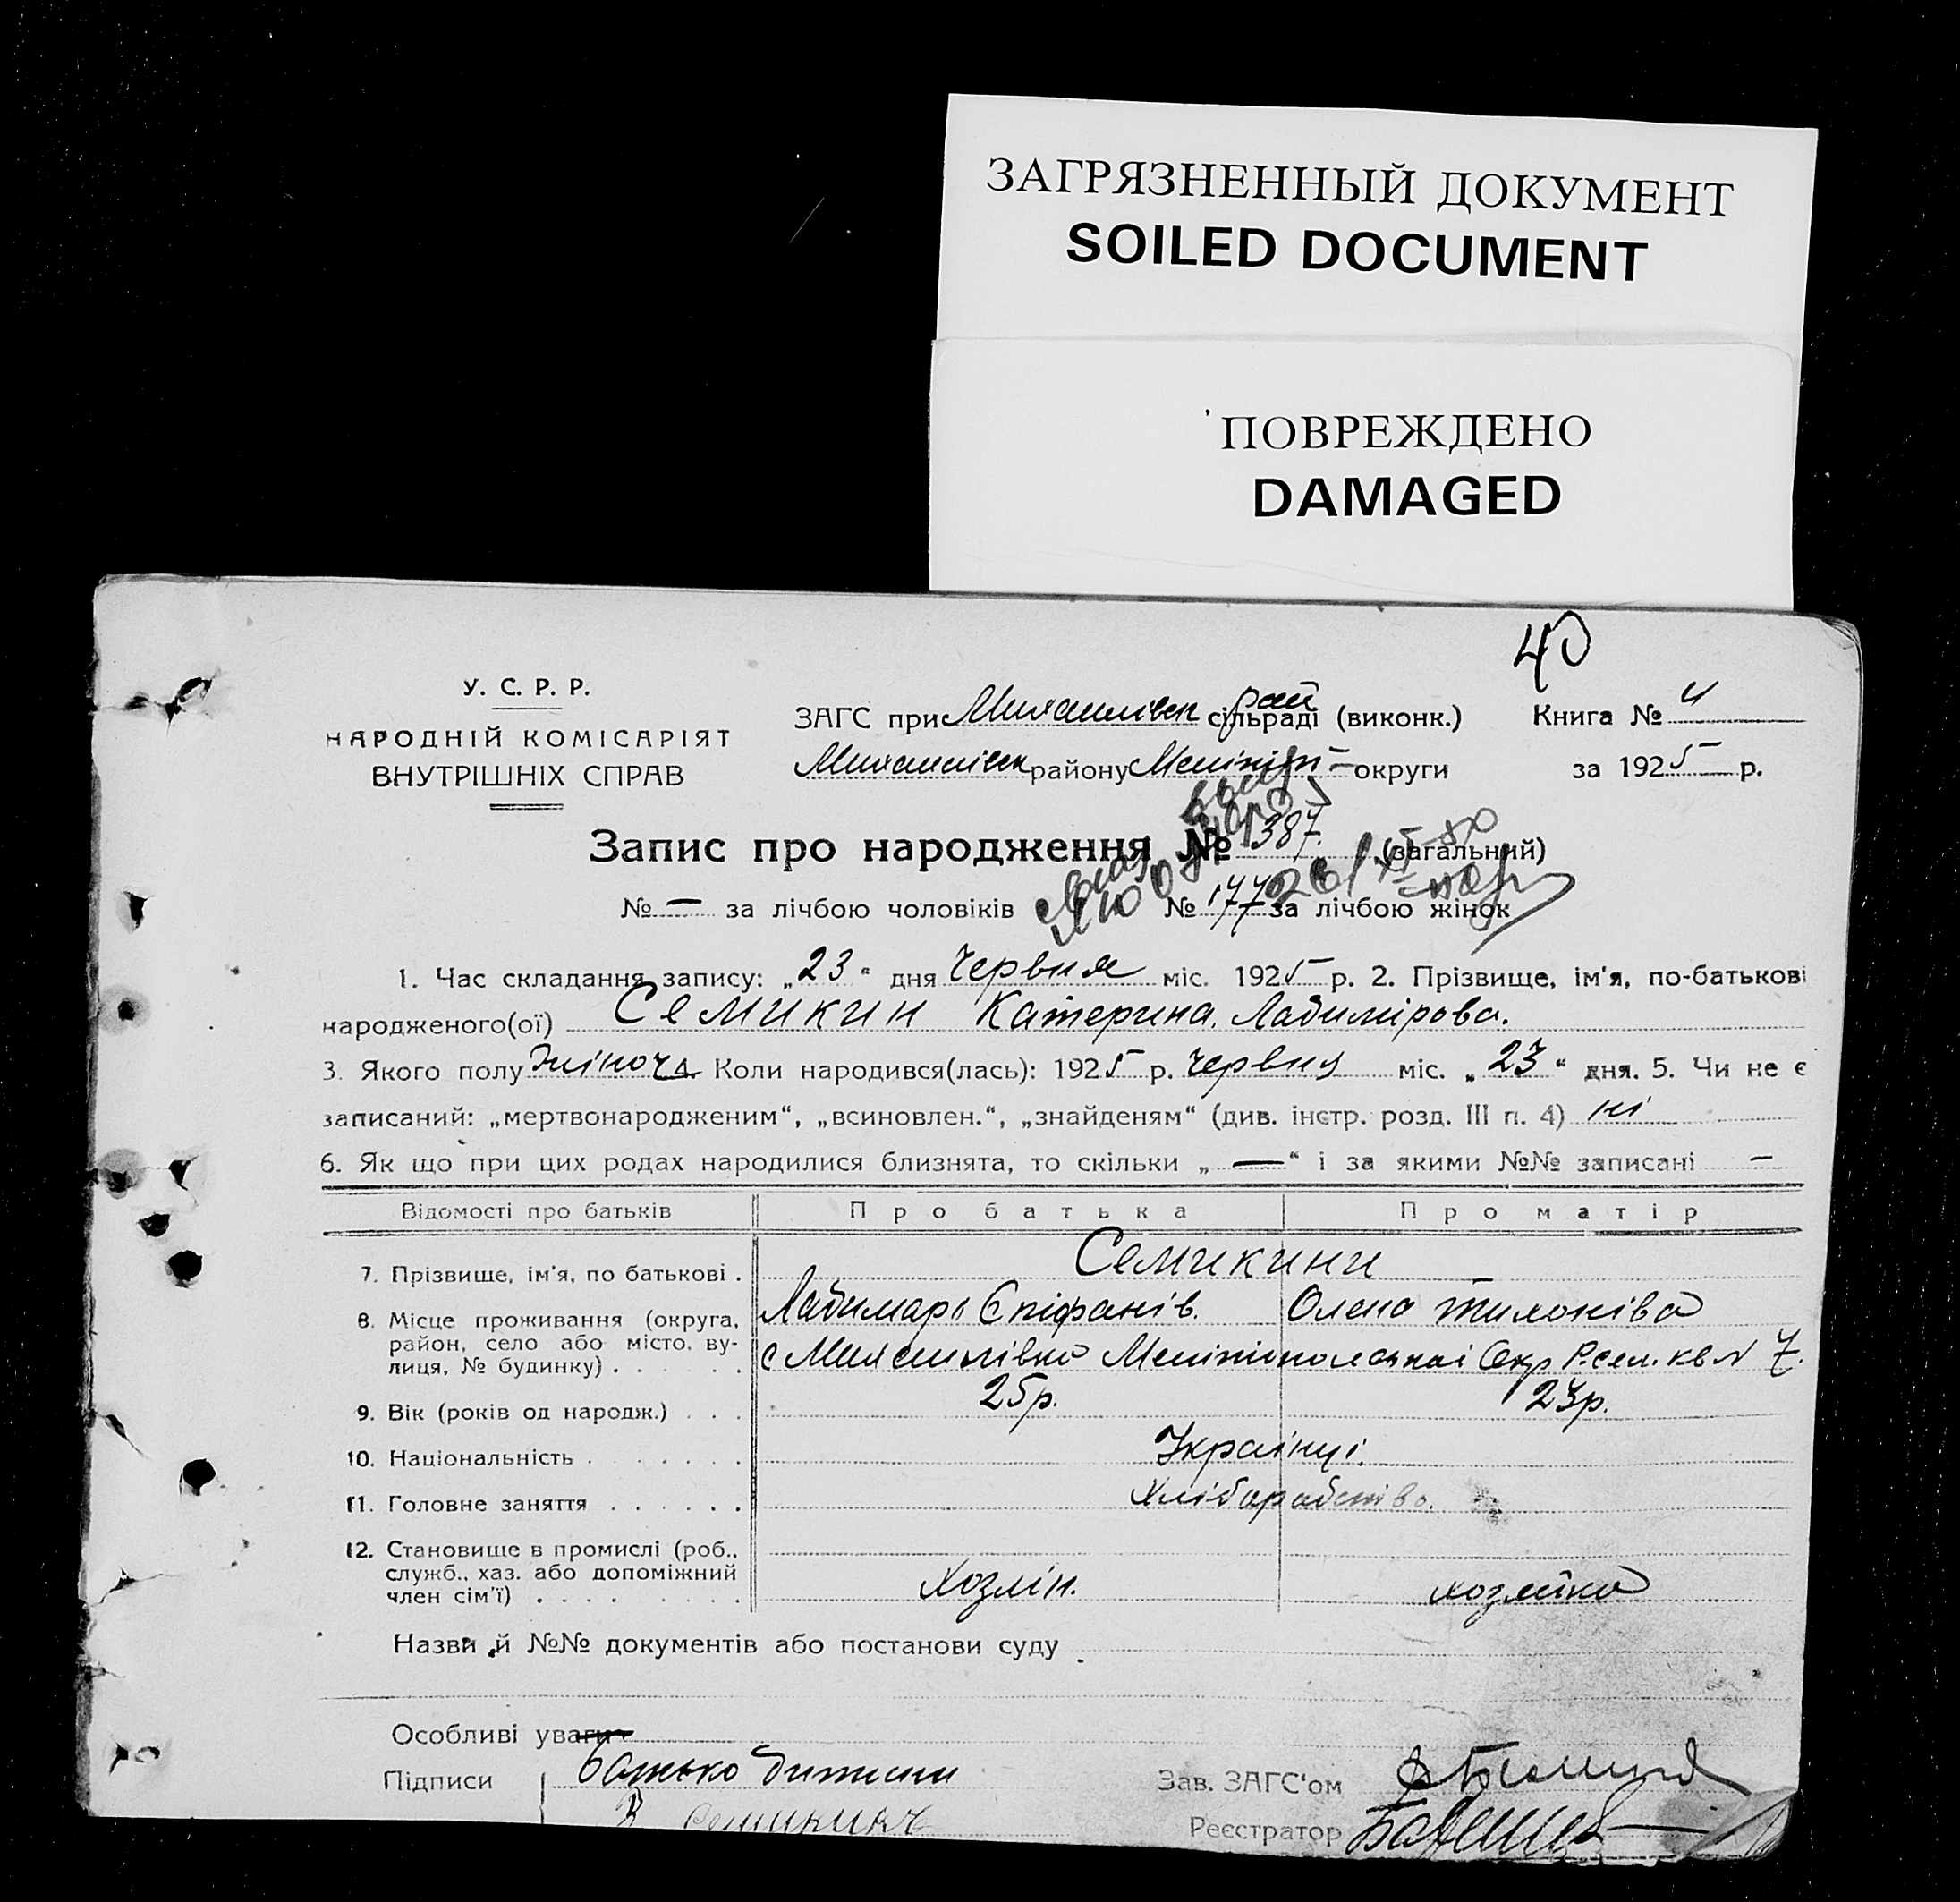 ЗАГРЯЗНЕННЫЙ ДОКУМЕНТ
SOILED DOCUMENT
ПОВРЕЖДЕНО
DAMAGED
40
У. С. Р. Р.
НАРОДНІЙ КОМІСАРІЯТ
ВНУТРІШНІХ СПРАВ
ЗАГС при Михайлівск рай сільраді (виконк.) Книга № 4
Михайлівск району Меліт округи за 1925 р.
Запис про народження № 387. (загальний)
№ — за лічбою чоловіків № 177 за лічбою жінок
1. Час складання запису: „23“ дня Червня міс. 1925 р. 2. Прізвище, ім'я, по-батькові
народженого(ої) Семикин Катерина Ладимірова.
3. Якого полу жіноч. 4. Коли народився(лась): 1925 р. Червня міс. „23“ дня. 5. Чи не є
записаний: „мертвонародженим“, „всиновлен.“, „знайденям“ (див. інстр. розд. III п. 4) ні
6. Як що при цих родах народилися близнята, то скільки „—“ і за якими №№ записані —
Відомості про батьків Про батька Про матір
7. Прізвище, ім'я, по батькові . Семикини
Ладимарь Єпіфанів. Олена Тихоніва
8. Місце проживання (округа, район, село або місто, ву-
лиця, № будинку) . . . . . с Михайлівка Мелітопольскаі Окр Р.сел. кв N 7.
9. Вік (років од народж.) . . . 25р. 23р.
10. Національність . . . . . . . Українці.
11. Головне заняття . . . . . . Хліборобство.
12. Становище в промислі (роб.,
служб., хаз. або допоміжний
член сім'ї) . . . . . . . . Хозяін. хозяйка
Назви й №№ документів або постанови суду
Особливі уваги
Підписи Батько дитини Зав. ЗАГС'ом
В Семикинъ Реєстратор